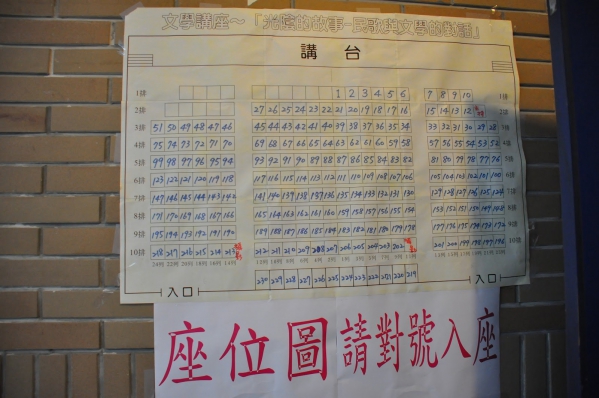 文學講座~「光陰的故事-民歌與文學的對話」
講台
1排 1 2 3 4 5 6 7 8 9 10 1排
2排 27 26 25 24 23 22 21 20 19 18 17 16 15 14 13 12 2排
3排 51 50 49 48 47 46 45 44 43 42 41 40 39 38 37 36 35 34 33 32 31 30 29 28 3排
4排 75 74 73 72 71 70 69 68 67 66 65 64 63 62 61 60 59 58 57 56 55 54 53 52 4排
5排 99 98 97 96 95 94 93 92 91 90 89 88 87 86 85 84 83 82 81 80 79 78 77 76 5排
6排 123 122 121 120 119 118 117 116 115 114 113 112 111 110 109 108 107 106 105 104 103 102 101 100 6排
7排 147 146 145 144 143 142 141 140 139 138 137 136 135 134 133 132 131 130 129 128 127 126 125 124 7排
8排 171 170 169 168 167 166 165 164 163 162 161 160 159 158 157 156 155 154 153 152 151 150 149 148 8排
9排 195 194 193 192 191 190 189 188 187 186 185 184 183 182 181 180 179 178 177 176 175 174 173 172 9排
10排 218 217 216 215 214 213 212 211 210 209 208 207 206 205 204 203 202 201 200 199 198 197 196 10排
230 229 228 227 226 225 224 223 222 221 220 219
入口 入口
座位圖請對號入座